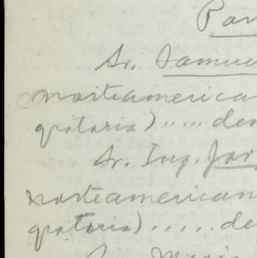 Pan
Sr. Samue
norteamerica
gritaria)..... de
Sr. Ing. Jor
norteamerican
gritaria)..... de